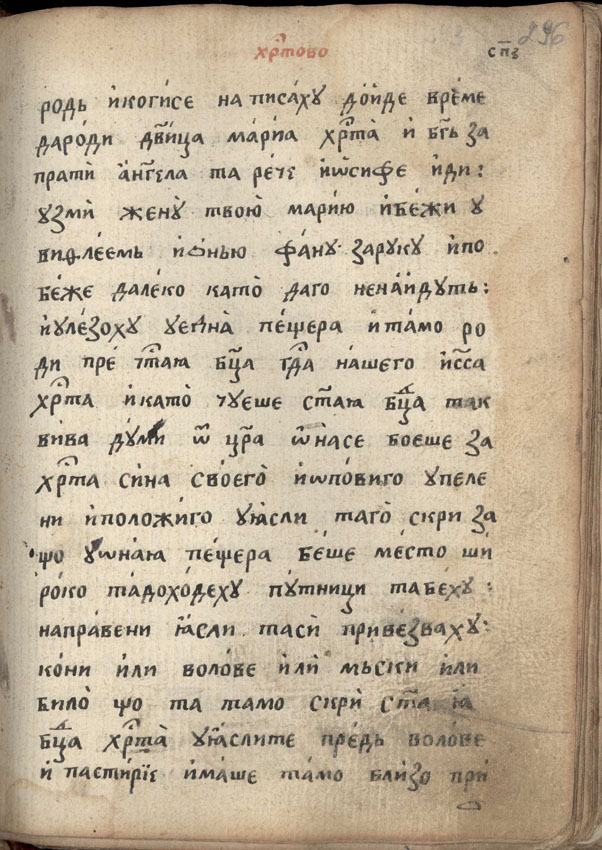 хрⷭ҇тово спз 296
родь и҆коги́се написа́ху до́йде вре́ме
даро́ди дв҃и́ца ма́риа хрⷭ҇та̀ и҆ бг҃ь за
прати҆ а҆́нг҃ела та ре́че и҆ѡ҆сифе и҆́ди :
узми҆ жену̀ твою̀ мари́ю и҆бе́жи у
виѳле́емь и҆ѻ҆нью фа́ну заруку и҆по
бе́же дале́ко като̀ даго нена́йдуть :
и҆уле́зоху уедна̀ пе́щера и҆та́мо ро
ди пре́чⷭ҇таꙗ бц҃а гдⷭ҇а на́шего и҆сⷭ҇са
хрⷭ҇та и҆като̀ чуеше ст҃аꙗ бцⷣа так
ви́ва ду́ми ѿ цр҃а ѡ҆на́се боеше за
хрⷭ҇та си́на сво́его̀ и҆ѡпо́виго упеле
ни и҆положи́го уꙗ҆сли таго̀ скри за
що уѡ҆на́ꙗ пе́щера бе́ше ме́сто ши
ро́ко та̀дохо́деху пу́тници табе́ху :
напра́вени ꙗ҆́сли таси҆ приве́зваху :
ко́ни и҆́ли воло́ве и҆́ли҆ мьски и҆ли
било̀ що та тамо скри̑ ст҃а ꙗ҆
бцⷣа хрⷭ҇та̀ уꙗ҆́слите пре́дь воло́ве
и҆ пасти́рїе и҆́маше та́мо бли́зо при҆